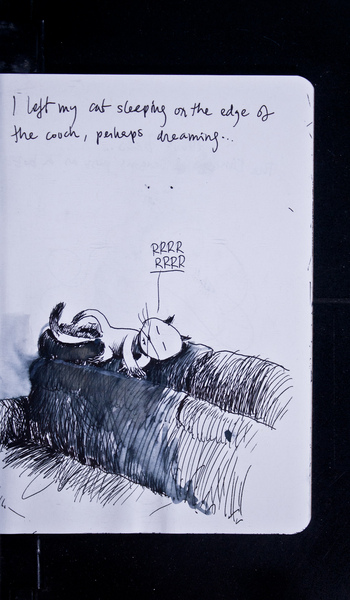 I left my cat sleeping on the edge of
the couch, perhaps dreaming...
RRRR
RRRR